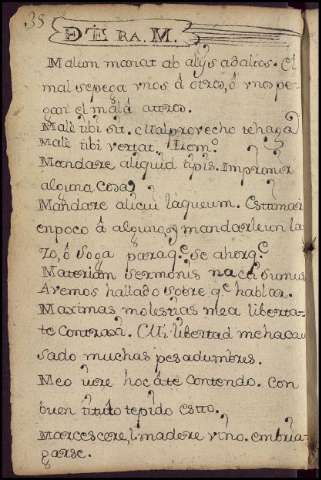 35
DE RA. M.
Malum manat ab alijs ad alios. El
mal se pega unos á otros, ó unos pe-
gan el mal á otros.
Malè tibi sit. Mal provecho te haga
Malè tibi vertat. Item.
Mandare aliquid typis. Imprimir
alguna cosa.
Mandare alicui laqueum. Estimar
en poco á alguno, y mandarle un la-
zo, ó soga para q.e se ahorq.e
Materiam sermonis nacti sumus
Avemos hallado sobre q.e hablar.
Maximas molestias mea liberta-
te contraxi. Mi libertad me ha cau
sado muchas pesadumbres.
Meo iure hoc á te contendo. Con
buen titulo te pido esto.
Marcescere, l. madere vino. embria-
garse.